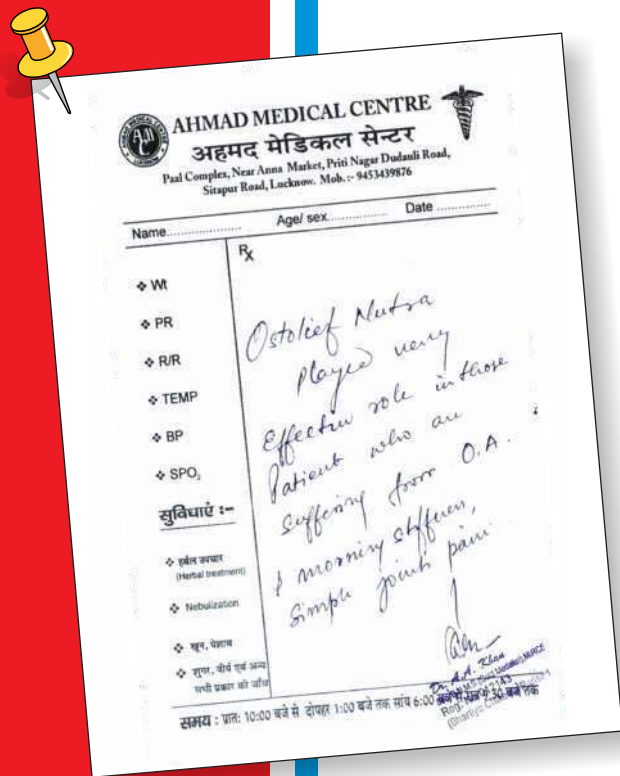 AHMAD MEDICAL CENTRE
अहमद मेडिकल सेन्टर
Paal Complex, Near Anna Market, Priti Nagar Dudauli Road,
Sitapur Road, Lucknow. Mob. :- 9453439876
Name..................... Age/ sex................ Date ...............
Rx
❖ Wt
❖ PR
❖ R/R
❖ TEMP
❖ BP
❖ SPO₂
सुविधाएं :–
❖ हर्बल उपचार
(Herbal treatment)
❖ Nebulization
❖ खून, पेशाब
❖ शुगर, वीर्य एवं अन्य
सभी प्रकार की जाँच
Ostolief Nutra
Played very
Effective role in those
Patient who are
suffering from O.A.
& morning stiffness,
Simple joints pain
Dr. A.A. Khan
समय : प्रातः 10:00 बजे से दोपहर 1:00 बजे तक सांय 6:00 बजे तक